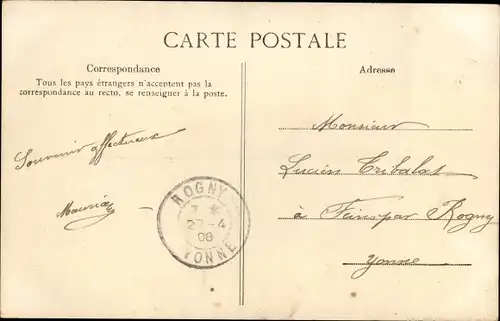 CARTE POSTALE
Correspondance
Tous les pays étrangers n'acceptent pas la
correspondance au recto, se renseigner à la poste.
Souvenir affectueux
ROGNY
7 *
27-4
08
YONNE
Adresse
Monsieur
Lucien Tribalat
à Feins par Rogny
Yonne